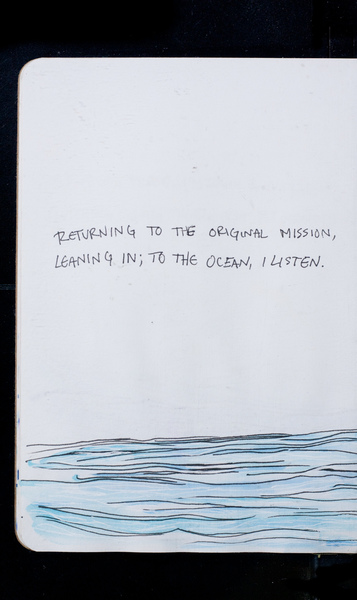 RETURNING TO THE ORIGINAL MISSION,
LEANING IN; TO THE OCEAN, I LISTEN.